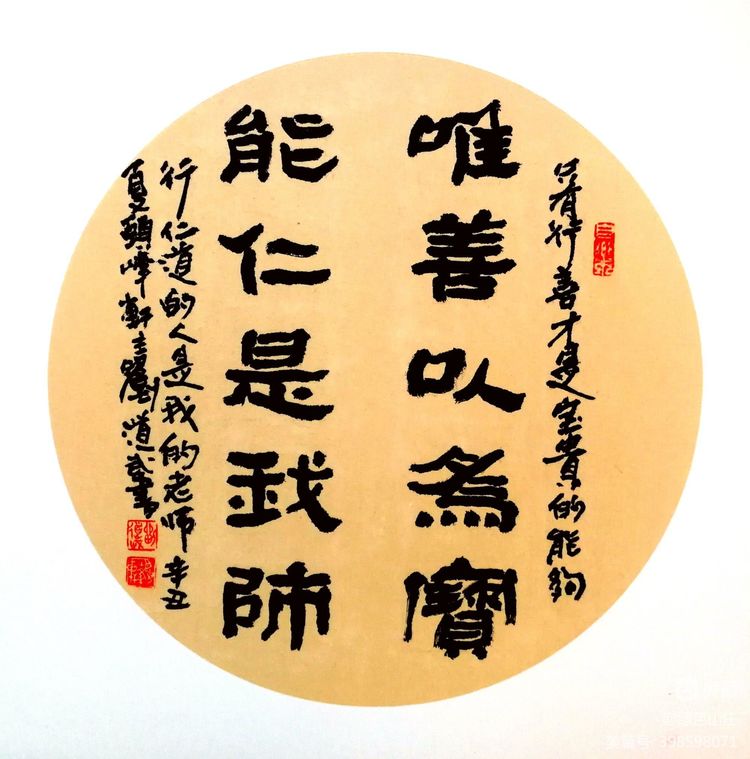 只有行善才是宝贵的能夠
唯善以為寶
能仁是我師
行仁道的人是我的老师 辛丑
夏 峰 主劉道武書
美篇号 398598071